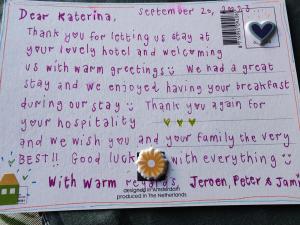 Dear Katerina, September 20, 2023
Thank you for letting us stay at
your lovely hotel and welcoming
us with warm greetings We had a great
stay and we enjoyed having your breakfast
during our stay Thank you again for
your hospitality
and we wish you and your family the very
BEST!! Good luck with everything
With warm regards Jeroen, Peter & Jami
designed in Amsterdam
produced in The Netherlands